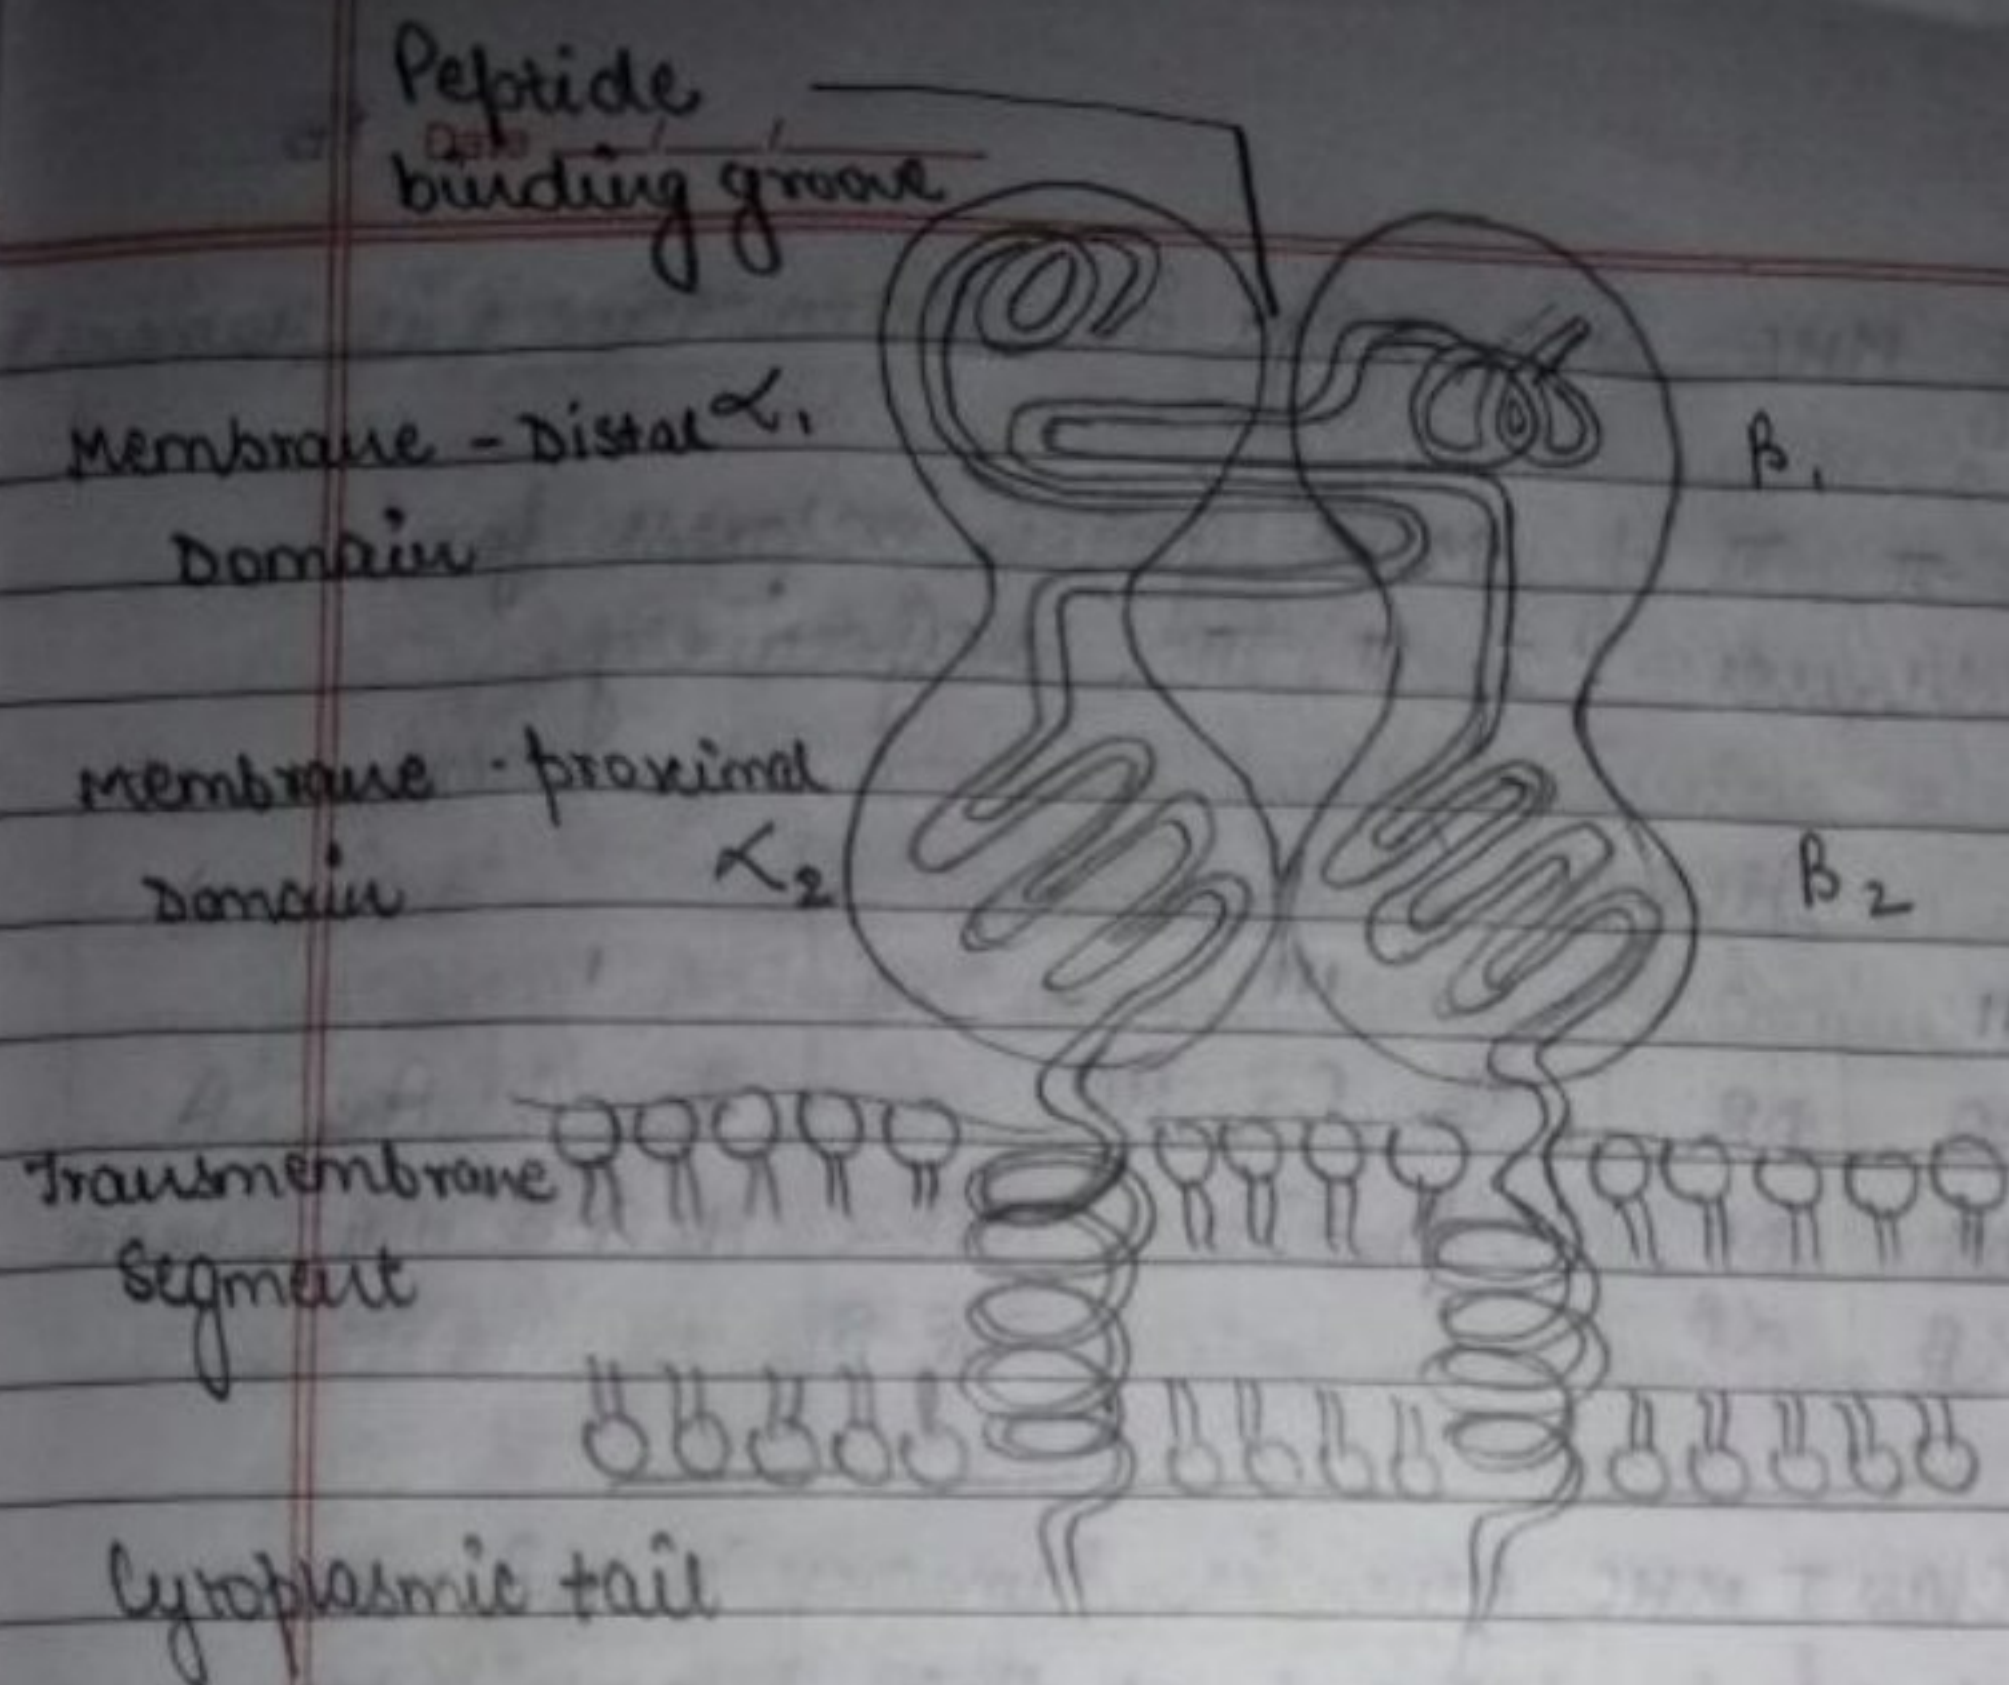 Peptide
Date / /
binding groove
Membrane - Distal α₁
Domain
β₁
Membrane - proximal
Domain
α₂
β₂
Transmembrane
Segment
Cytoplasmic tail